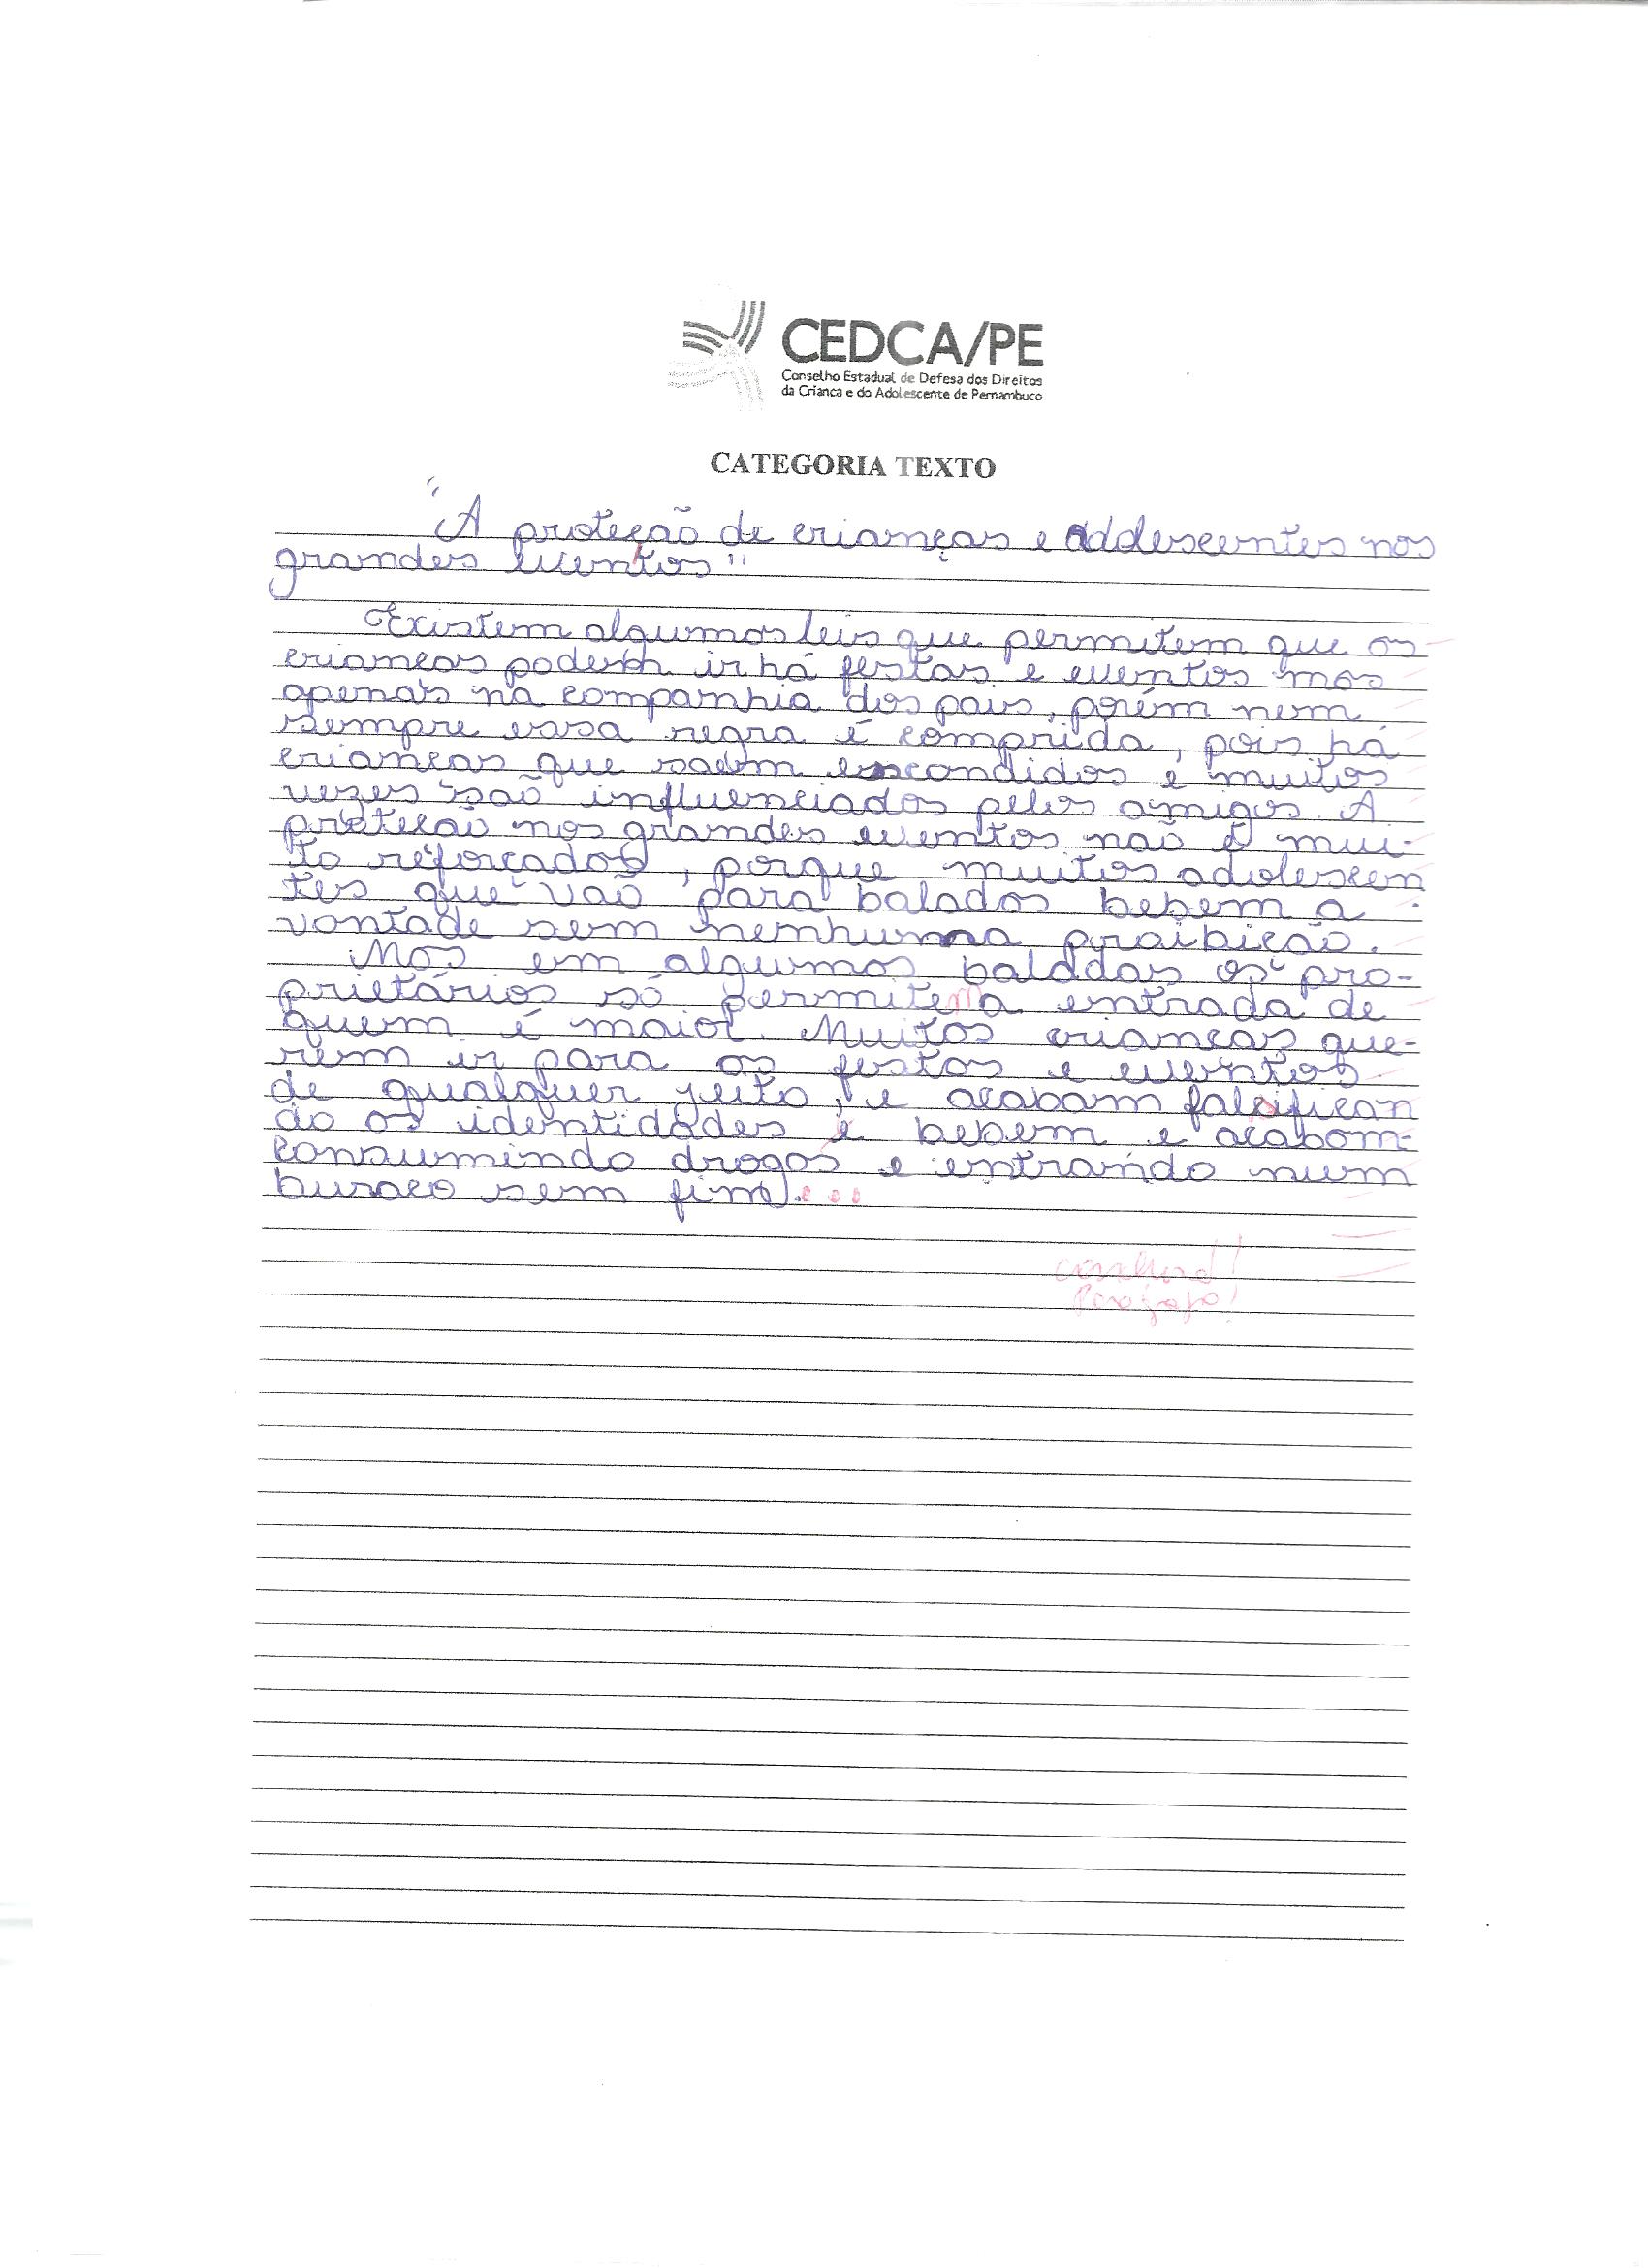 CEDCA/PE
Conselho Estadual de Defesa dos Direitos
da Criança e do Adolescente de Pernambuco
CATEGORIA TEXTO
"A proteção de crianças e Addolescentes nos
grandes eventos"
Existem algumas leis que permitem que as
crianças podem ir há festas e eventos mas
apenas na companhia dos pais, porém nem
sempre essa regra é comprida, pois há
crianças que saem escondidas e muitas
vezes são influenciados pelos amigos. A
proteção nos grandes eventos não é mui-
to reforçados, porque muitos adolescen
tes que vão para baladas bebem a
vontade sem nenhuma proibição.
Mas em algumas baladas os pro-
prietários só permitem a entrada de
quem é maior. Muitas crianças que-
rem ir para as festas e eventos
de qualquer jeito, e acabam falsifican
do as identidades e bebem e acabam
consumindo drogas e entrando num
buraco sem fim...
Parágrafo!